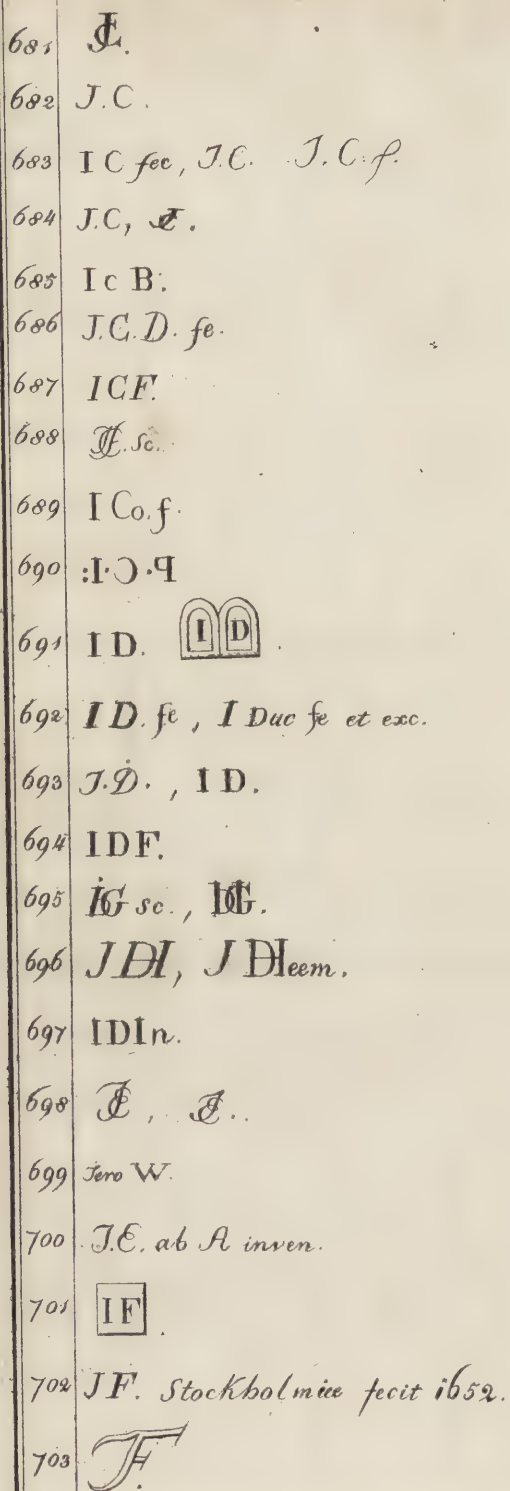 681 JC.
682 J.C.
683 I C fec, J.C. J.C.f.
684 J.C, JC.
685 I c B:
686 J.C.D. fe.
687 ICF.
688 sc.
689 I Co.f.
690 :I·Ɔ·ꟼ
691 I D. I D.
692 I D. fe, I Duc fe et exc.
693 J.D., I D.
694 IDF.
695 IDG sc., IDG.
696 JDH, J DHeem.
697 IDIn.
698
699 Jero W.
700 J.E. ab A inven.
701 IF.
702 JF. Stockholmiæ fecit 1652.
703 JF.